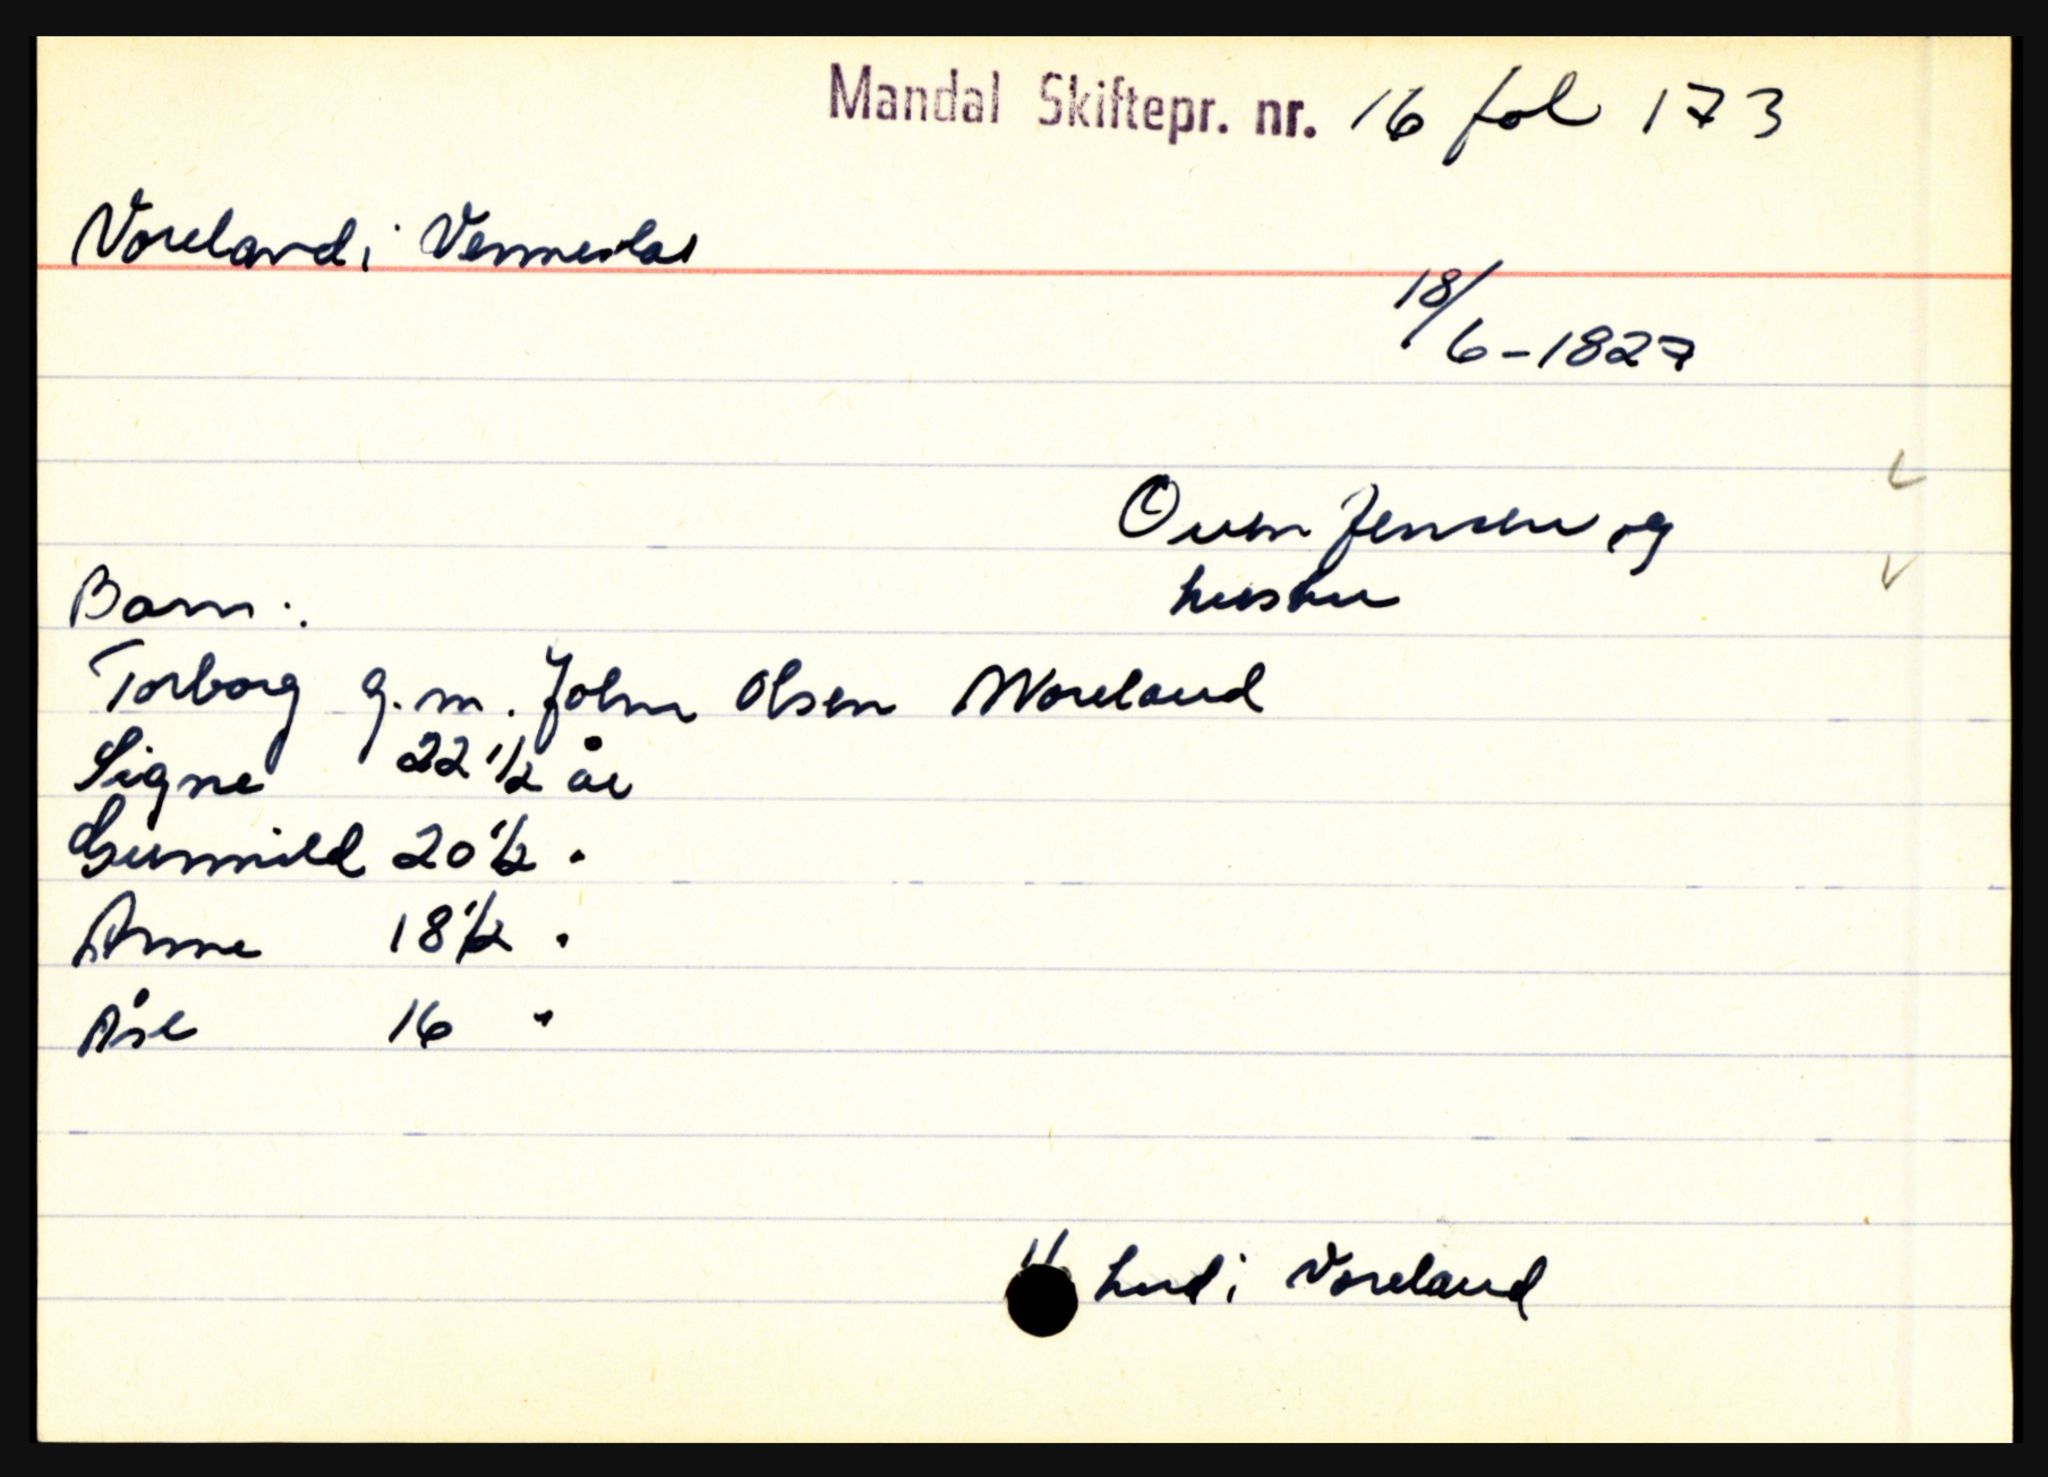 Mandal Skiftepr. nr. 16 fol 173
Voreland i Vennesla
18/6-1827
Ouen Jensen og
hustru
Barn:
Torborg g.m. John Olsen Woreland
Signe 22 1/2 år
Gunnild 20 1/2 "
Anne 18 1/2 "
Åse 16 "
hud i Voreland